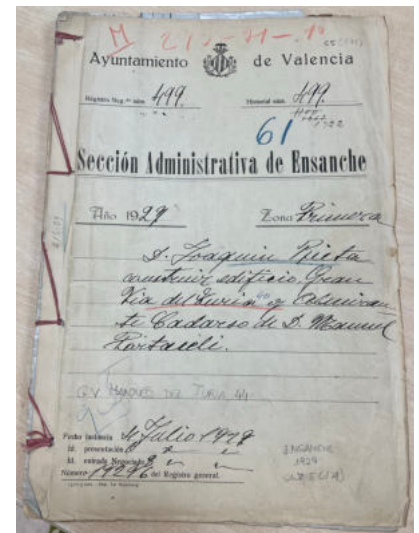 M 213-31-1º
Ayuntamiento de Valencia
Registro Neg.º núm. 499. Historial núm. 499.
1922
61
Sección Administrativa de Ensanche
Año 1929 Zona Primera
D. Joaquin Rieta
construir edificio Gran
Via del Turia 40 y Almiran-
te Cadarso de D. Manuel
Portaceli.
G.V. MARQUES DEL TURIA 44
Fecha instancia 4 Julio 1929
Id. presentación 8
Id. entrada Negociado 8
Número 19296 del Registro general.
ENSANCHE
1929